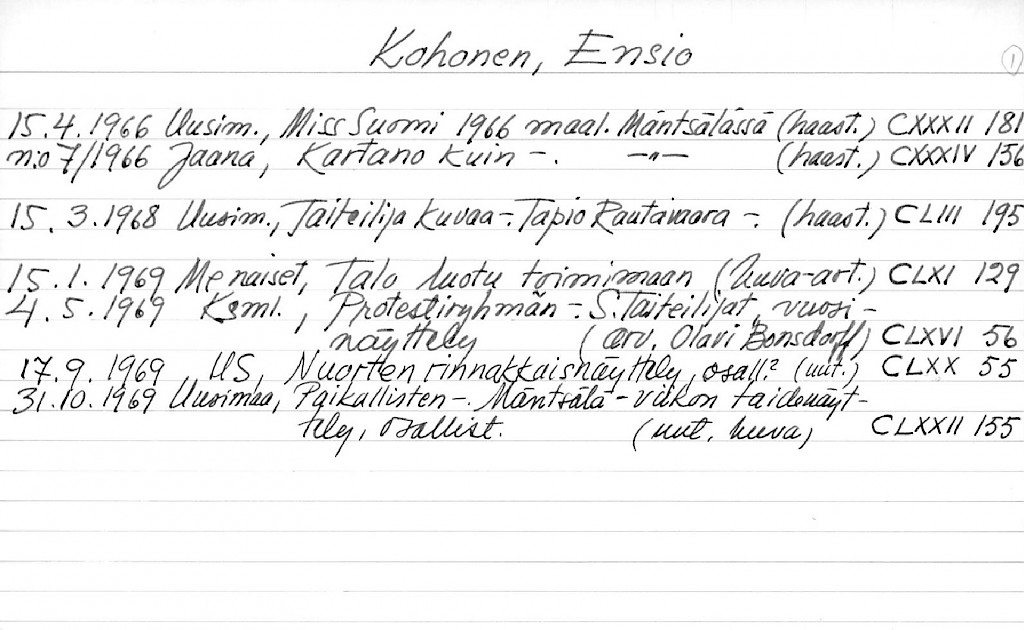 Kohonen, Ensio 1
15.4.1966 Uusim., Miss Suomi 1966 maal. Mäntsälässä (haast.) CXXXII 181
n:o 7/1966 Jaana, Kartano kuin -. —"— (haast.) CXXXIV 156
15.3.1968 Uusim., Taiteilija kuvaa -. Tapio Rautavaara -. (haast.) CLIII 195
15.1.1969 Me naiset, Talo luotu toimimaan (kuva-art.) CLXI 129
4.5.1969 Ksml., Protestiryhmän -. S. Taiteilijat, vuosi-
näyttely (arv. Olavi Bonsdorff) CLXVI 56
17.9.1969 US, Nuorten rinnakkaisnäyttely, osall? (uut.) CLXX 55
31.10.1969 Uusimaa, Paikallisten -. Mäntsälä-viikon taidenäyt-
tely, osallist. (uut, kuva) CLXXII 155